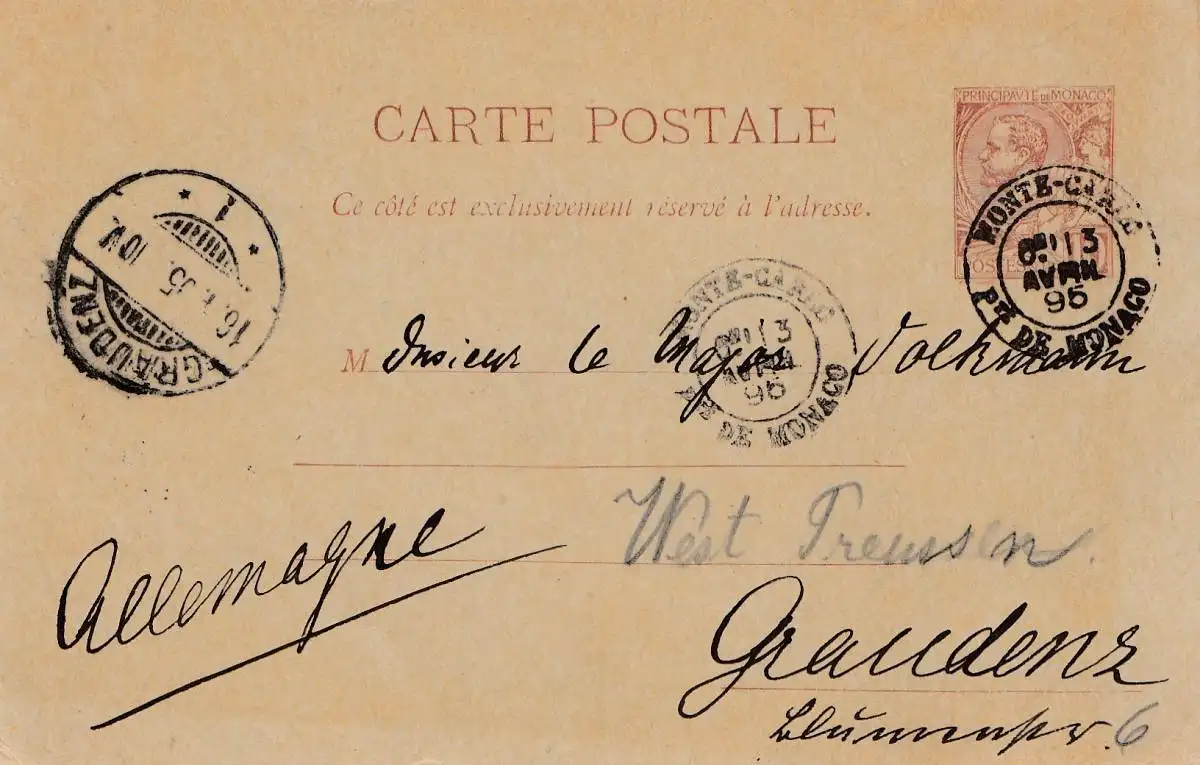 PRINCIPAUTE DE MONACO
CARTE POSTALE
Ce côté est exclusivement réservé à l'adresse.
MONTE-CARLO
13
AVRIL
95
Pté DE MONACO
1
GRAUDENZ
MONTE-CARLO
13
AVRIL
95
Pté DE MONACO
Monsieur le Major Volkmann
West Preussen.
Allemagne
Graudenz
Blumenstr. 6